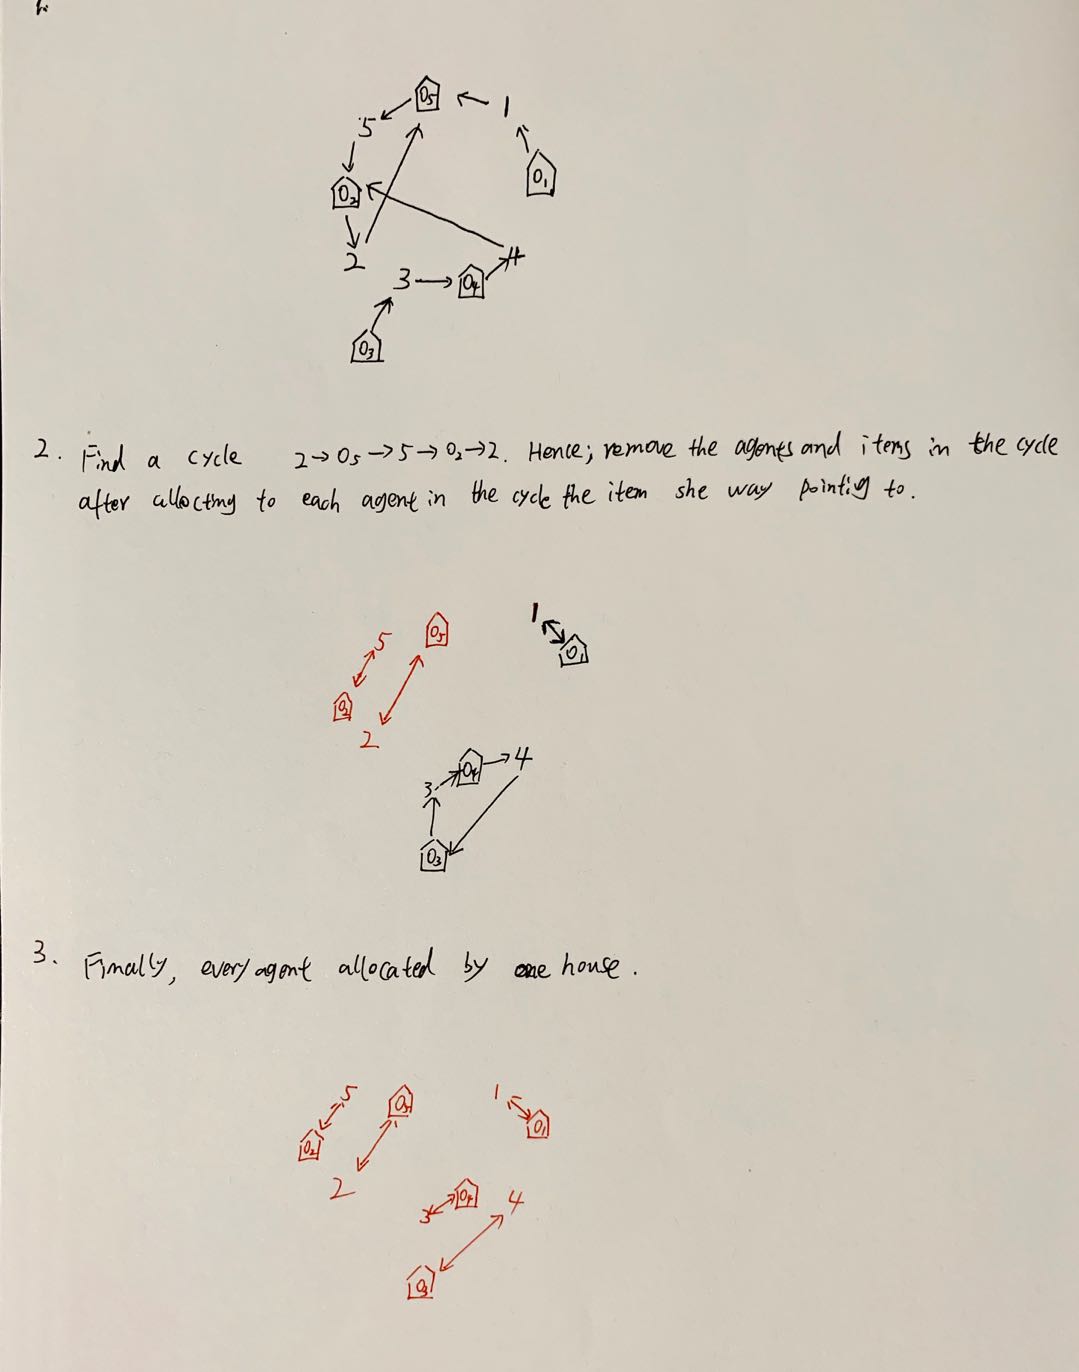 O5
1
5
O2
O1
2
4
3
O4
O3
2. Find a cycle 2→O5→5→O2→2. Hence; remove the agents and items in the cycle
after allocting to each agent in the cycle the item she way pointig to.
1
5
O5
O1
O2
2
4
O4
3
O3
3. Finally, every agent allocated by one house.
5
1
O5
O1
O2
2
O4
4
3
O3